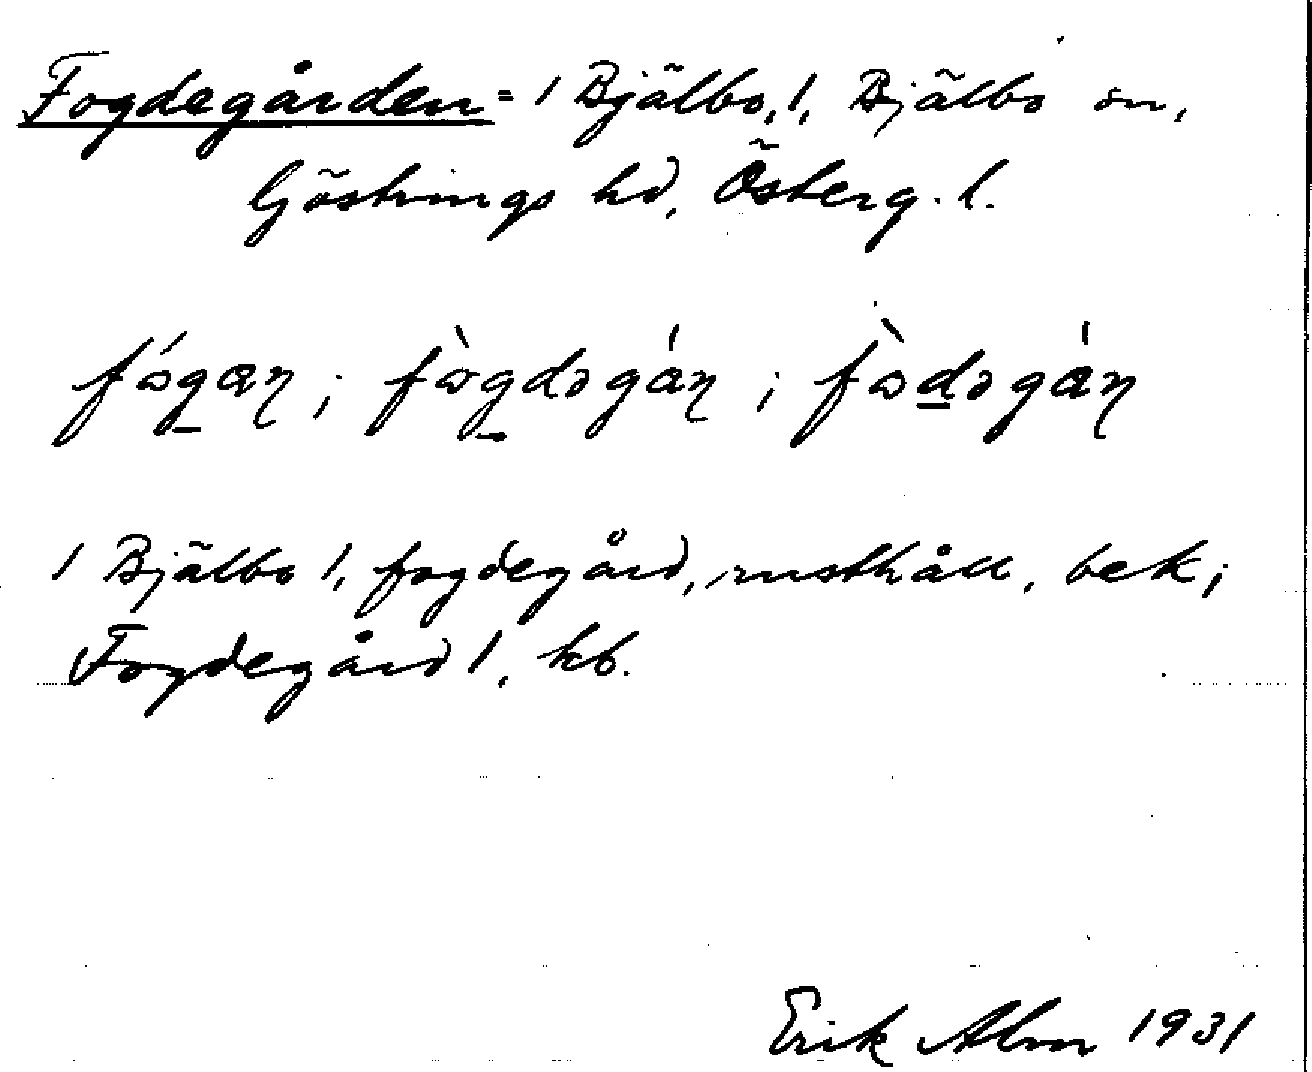 Fogdegården = /Bjälbo, 1, Bjälbo sn,
Göstrings hd, Österg. l.
fɷ́gaɳ; fɷ̀gdəgáɳ; fɷ̀dəgáɳ
/Bjälbo 1, fogdegård, rusthåll, bek;
Fogdegård 1, kb.
Erik Alm 1931